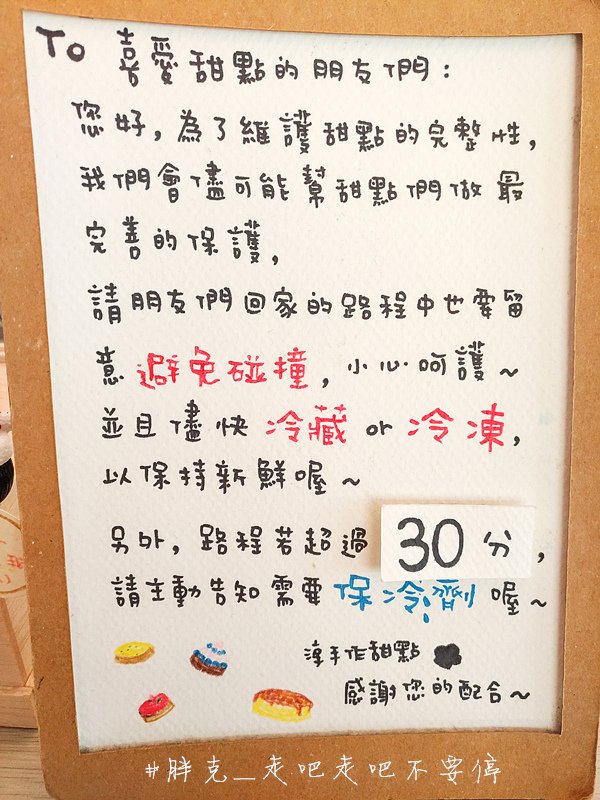 To 喜愛甜點的朋友們:
您好,為了維護甜點的完整性,
我們會儘可能幫甜點們做最
完善的保護,
請朋友們回家的路程中也要留
意避免碰撞,小心呵護~
並且儘快冷藏or冷凍,
以保持新鮮喔~
另外,路程若超過30分,
請主動告知需要保冷劑喔~
淳手作甜點
感謝您的配合~
#胖克_走吧走吧不要停